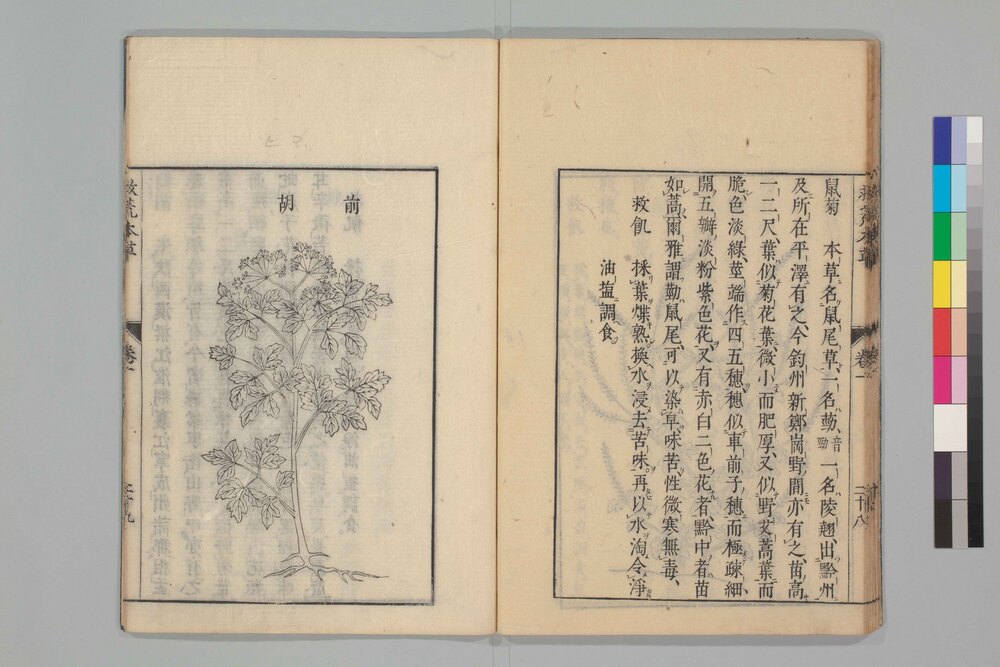 救荒本草
卷一
二十八
鼠菊　本草名鼠尾草一名葝音勁一名陵翹出黔州
及所在平澤有之今鈞州新鄭崗野間亦有之苗高
一二尺葉似菊花葉微小而肥厚又似野艾蒿葉而
脆色淡綠莖端作四五穗穗似車前子穗而極疎細
開五瓣淡粉紫色花又有赤白二色花者黔中者苗
如蒿爾雅謂葝鼠尾可以染皁味苦性微寒無毒
救飢　採葉煠熟換水浸去苦味再以水淘令淨
油塩調食
前
胡
救荒本草
卷一
二十九